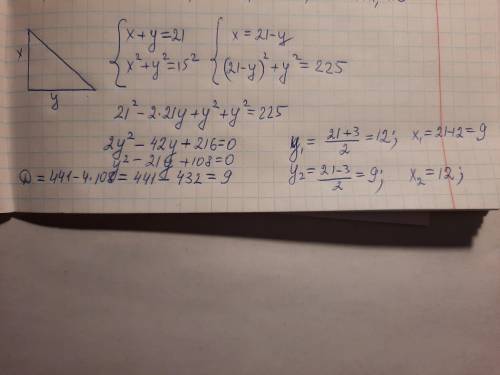 x
y
{ x+y=21
x²+y²=15²
{ x=21-y
(21-y)²+y²=225
21²-2·21y+y²+y²=225
2y²-42y+216=0
y²-21y+108=0
D=441-4·108=441-432=9
y₁=(21+3)/2=12; x₁=21-12=9
y₂=(21-3)/2=9; x₂=12;